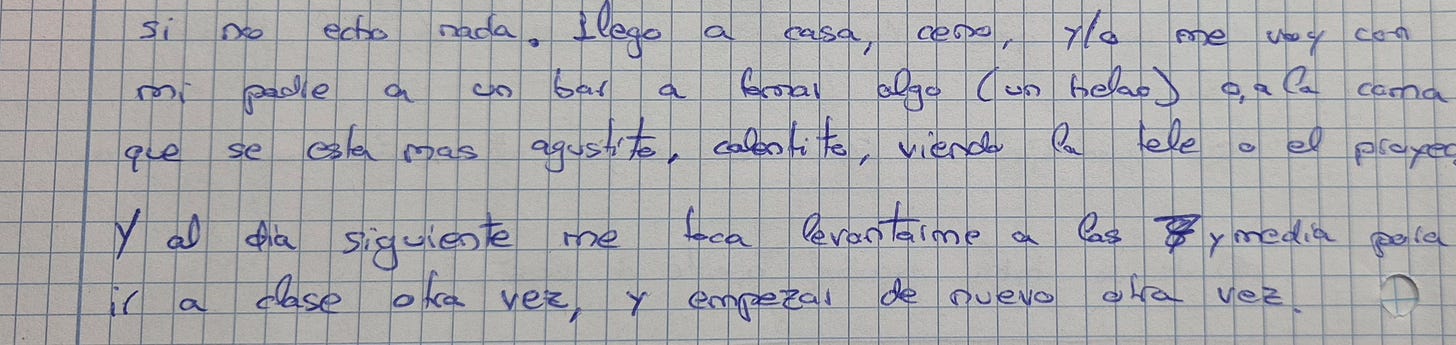 si no echo nada. Llego a casa, ceno, y/o me voy con
mi padre a un bar a tomar algo (un helao) o, a la cama
que se esta mas agustito, calentito, viendo la tele o el proyec
Y al dia siguiente me toca levantarme a las y media para
ir a clase otra vez, y empezar de nuevo otra vez.